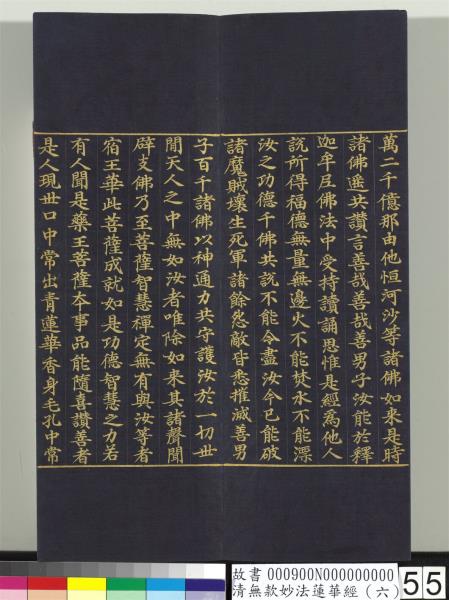 萬二千億那由他恒河沙等諸佛如來是時
諸佛遙共讚言善哉善哉善男子汝能於釋
迦牟尼佛法中受持讀誦思惟是經爲他人
說所得福德無量無邊火不能焚水不能漂
汝之功德千佛共說不能令盡汝今已能破
諸魔賊壞生死軍諸餘怨敵皆悉摧滅善男
子百千諸佛以神通力共守護汝於一切世
間天人之中無如汝者唯除如來其諸聲聞
辟支佛乃至菩薩智慧禪定無有與汝等者
宿王華此菩薩成就如是功德智慧之力若
有人聞是藥王菩薩本事品能隨喜讚善者
是人現世口中常出青蓮華香身毛孔中常
故書 000900N000000000
清無款妙法蓮華經（六）
55